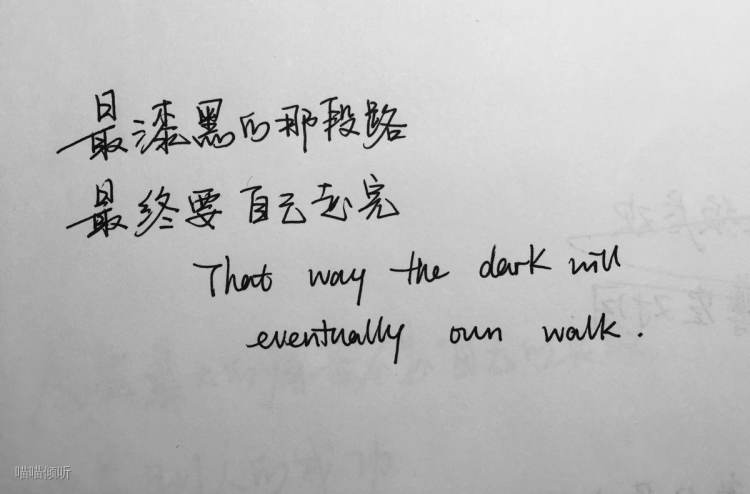 最漆黑的那段路
最终要自己走完
That way the dark will
eventually own walk.
喵喵倾听